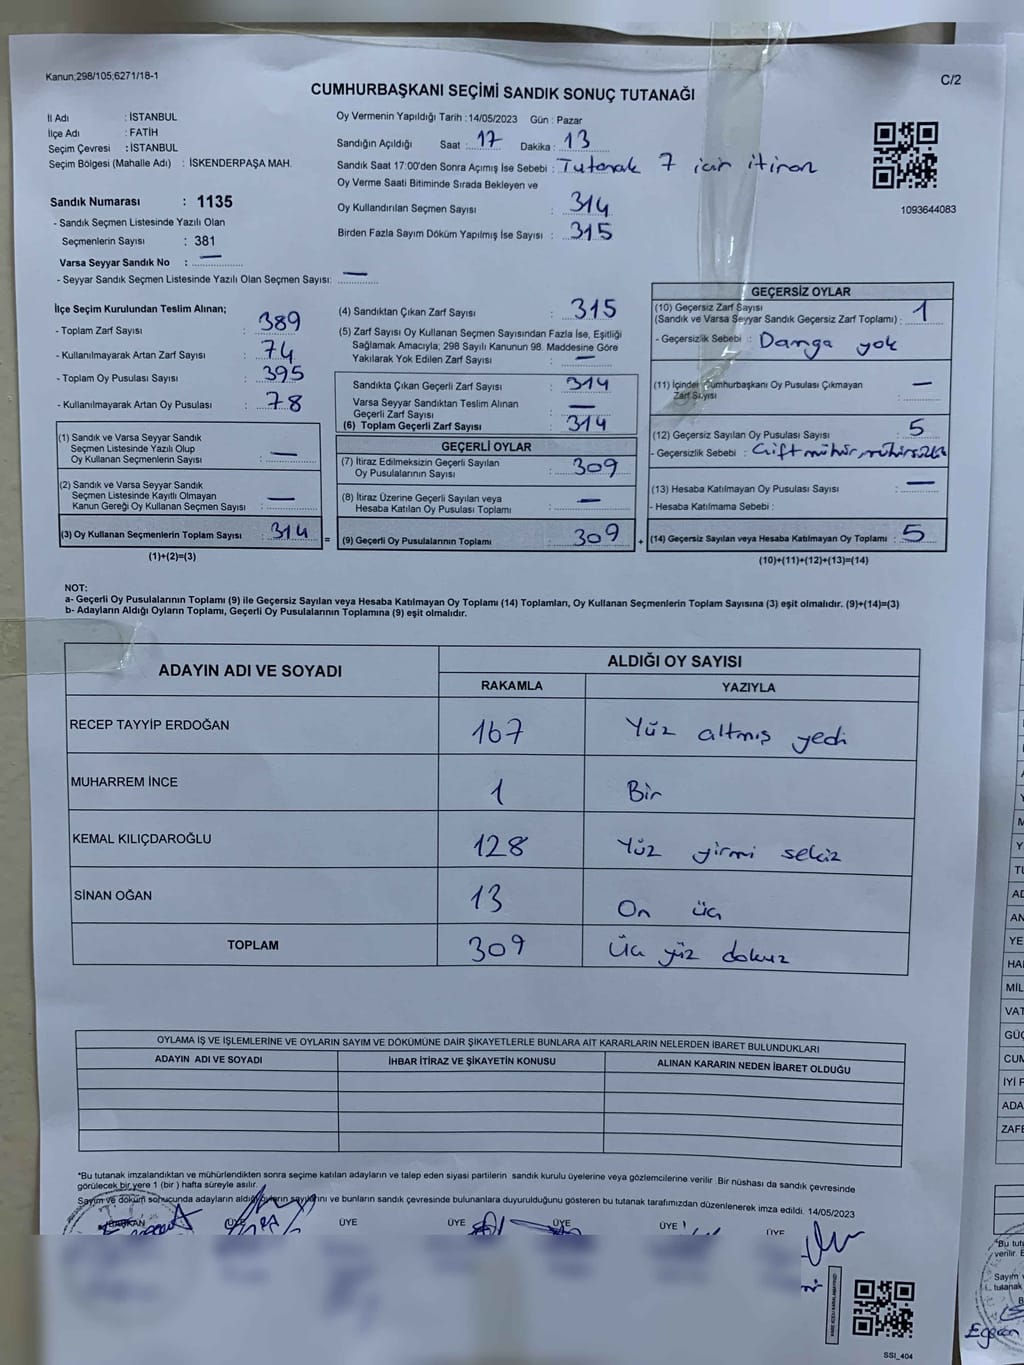 Kanun,298/105;6271/18-1
C/2
CUMHURBAŞKANI SEÇİMİ SANDIK SONUÇ TUTANAĞI
İl Adı : İSTANBUL
İlçe Adı : FATİH
Seçim Çevresi : İSTANBUL
Seçim Bölgesi (Mahalle Adı) : İSKENDERPAŞA MAH.
Oy Vermenin Yapıldığı Tarih :14/05/2023 Gün : Pazar
Sandığın Açıldığı Saat : 17 Dakika : 13
Sandık Saat 17:00'den Sonra Açımış İse Sebebi : Tutanak 7
Oy Verme Saati Bitiminde Sırada Bekleyen ve
Oy Kullandırılan Seçmen Sayısı : 314
Birden Fazla Sayım Döküm Yapılmış İse Sayısı : 315
1093644083
Sandık Numarası : 1135
- Sandık Seçmen Listesinde Yazılı Olan
Seçmenlerin Sayısı : 381
Varsa Seyyar Sandık No : —
- Seyyar Sandık Seçmen Listesinde Yazılı Olan Seçmen Sayısı: —
İlçe Seçim Kurulundan Teslim Alınan;
- Toplam Zarf Sayısı : 389
- Kullanılmayarak Artan Zarf Sayısı : 74
- Toplam Oy Pusulası Sayısı : 395
- Kullanılmayarak Artan Oy Pusulası : 78
(1) Sandık ve Varsa Seyyar Sandık
Seçmen Listesinde Yazılı Olup
Oy Kullanan Seçmenlerin Sayısı : —
(2) Sandık ve Varsa Seyyar Sandık
Seçmen Listesinde Kayıtlı Olmayan
Kanun Gereği Oy Kullanan Seçmen Sayısı : —
(3) Oy Kullanan Seçmenlerin Toplam Sayısı : 314
(1)+(2)=(3)
(4) Sandıktan Çıkan Zarf Sayısı : 315
(5) Zarf Sayısı Oy Kullanan Seçmen Sayısından Fazla İse, Eşitliği
Sağlamak Amacıyla; 298 Sayılı Kanunun 98. Maddesine Göre
Yakılarak Yok Edilen Zarf Sayısı : —
Sandıkta Çıkan Geçerli Zarf Sayısı : 314
Varsa Seyyar Sandıktan Teslim Alınan
Geçerli Zarf Sayısı : —
(6) Toplam Geçerli Zarf Sayısı : 314
GEÇERLİ OYLAR
(7) İtiraz Edilmeksizin Geçerli Sayılan
Oy Pusulalarının Sayısı : 309
(8) İtiraz Üzerine Geçerli Sayılan veya
Hesaba Katılan Oy Pusulası Toplamı : —
= (9) Geçerli Oy Pusulalarının Toplamı : 309 +
GEÇERSİZ OYLAR
(10) Geçersiz Zarf Sayısı
(Sandık ve Varsa Seyyar Sandık Geçersiz Zarf Toplamı) : 1
- Geçersizlik Sebebi : Damga yok
(11) İçinden Cumhurbaşkanı Oy Pusulası Çıkmayan
Zarf Sayısı : —
(12) Geçersiz Sayılan Oy Pusulası Sayısı : 5
- Geçersizlik Sebebi : Çift mühür
(13) Hesaba Katılmayan Oy Pusulası Sayısı : —
- Hesaba Katılmama Sebebi :
(14) Geçersiz Sayılan veya Hesaba Katılmayan Oy Toplamı : 5
(10)+(11)+(12)+(13)=(14)
NOT:
a- Geçerli Oy Pusulalarının Toplamı (9) ile Geçersiz Sayılan veya Hesaba Katılmayan Oy Toplamı (14) Toplamları, Oy Kullanan Seçmenlerin Toplam Sayısına (3) eşit olmalıdır. (9)+(14)=(3)
b- Adayların Aldığı Oyların Toplamı, Geçerli Oy Pusulalarının Toplamına (9) eşit olmalıdır.
ADAYIN ADI VE SOYADI ALDIĞI OY SAYISI
RAKAMLA YAZIYLA
RECEP TAYYİP ERDOĞAN 167 Yüz altmış yedi
MUHARREM İNCE 1 Bir
KEMAL KILIÇDAROĞLU 128 Yüz yirmi sekiz
SİNAN OĞAN 13 On üç
TOPLAM 309 Üç yüz dokuz
OYLAMA İŞ VE İŞLEMLERİNE VE OYLARIN SAYIM VE DÖKÜMÜNE DAİR ŞİKAYETLERLE BUNLARA AİT KARARLARIN NELERDEN İBARET BULUNDUKLARI
ADAYIN ADI VE SOYADI İHBAR İTİRAZ VE ŞİKAYETİN KONUSU ALINAN KARARIN NEDEN İBARET OLDUĞU
*Bu tutanak imzalandıktan ve mühürlendikten sonra seçime katılan adayların ve talep eden siyasi partilerin sandık kurulu üyelerine veya gözlemcilerine verilir .Bir nüshası da sandık çevresinde
görülecek bir yere 1 (bir ) hafta süreyle asılır.
Sayım ve döküm sonucunda adayların aldığı oyların sayılarını ve bunların sandık çevresinde bulunanlara duyurulduğunu gösteren bu tutanak tarafımızdan düzenlenerek imza edildi. 14/05/2023
BAŞKAN ÜYE ÜYE ÜYE ÜYE ÜYE ÜYE
SSI_404